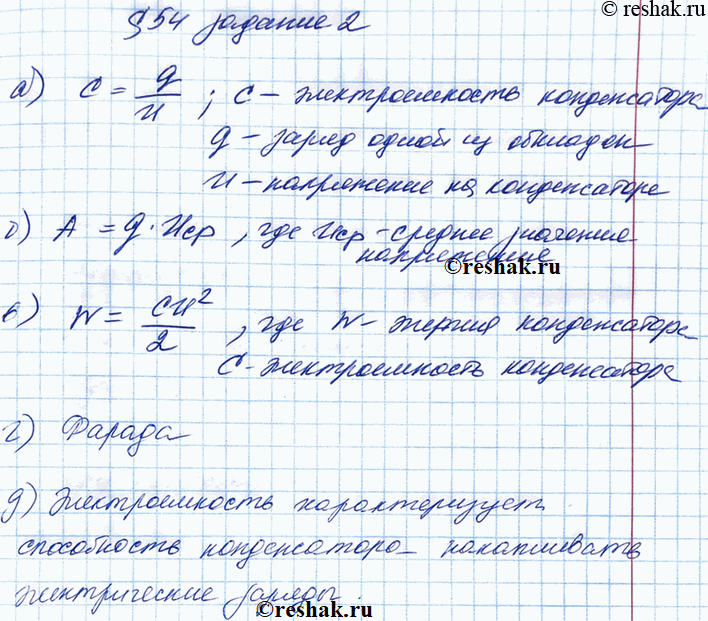 ©reshak.ru
§54 задание 2
а) C = q/U ; C – электроемкость конденсатора
q – заряд одной из обкладок
U – напряжение на конденсаторе
б) A = q · Uср , где Uср – среднее значение
напряжение
©reshak.ru
в) W = CU²/2 , где W – энергия конденсатора
C – электроемкость конденсатора
г) Фарада
д) Электроемкость характеризует
способность конденсатора накапливать
электрические заряды.
©reshak.ru